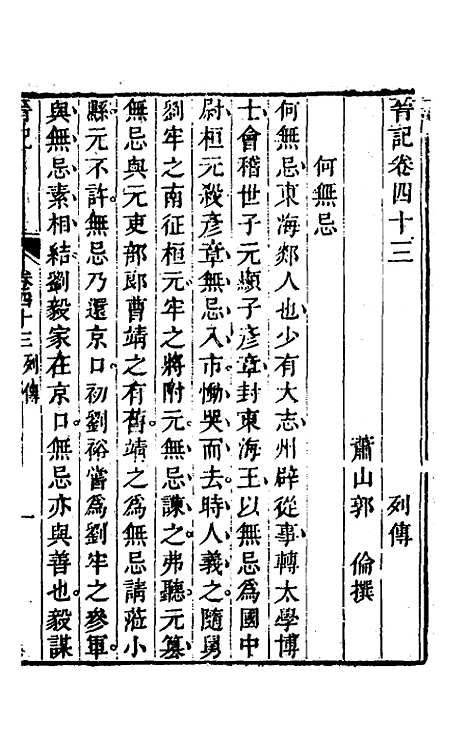 晉記卷四十三
列傳
蕭山郭 倫撰
何無忌
何無忌東海郯人也少有大志州辟從事轉太學博
士會稽世子元顯子彥章封東海王以無忌爲國中
尉桓元殺彥章無忌入市慟哭而去時人義之隨舅
劉牢之南征桓元牢之將附元無忌諫之弗聽元篡
無忌與元吏部郎曹靖之有舊靖之爲無忌請蒞小
縣元不許無忌乃還京口初劉裕嘗爲劉牢之參軍
與無忌素相結劉毅家在京口無忌亦與善也毅謀
晉記
卷四十三列傳
一